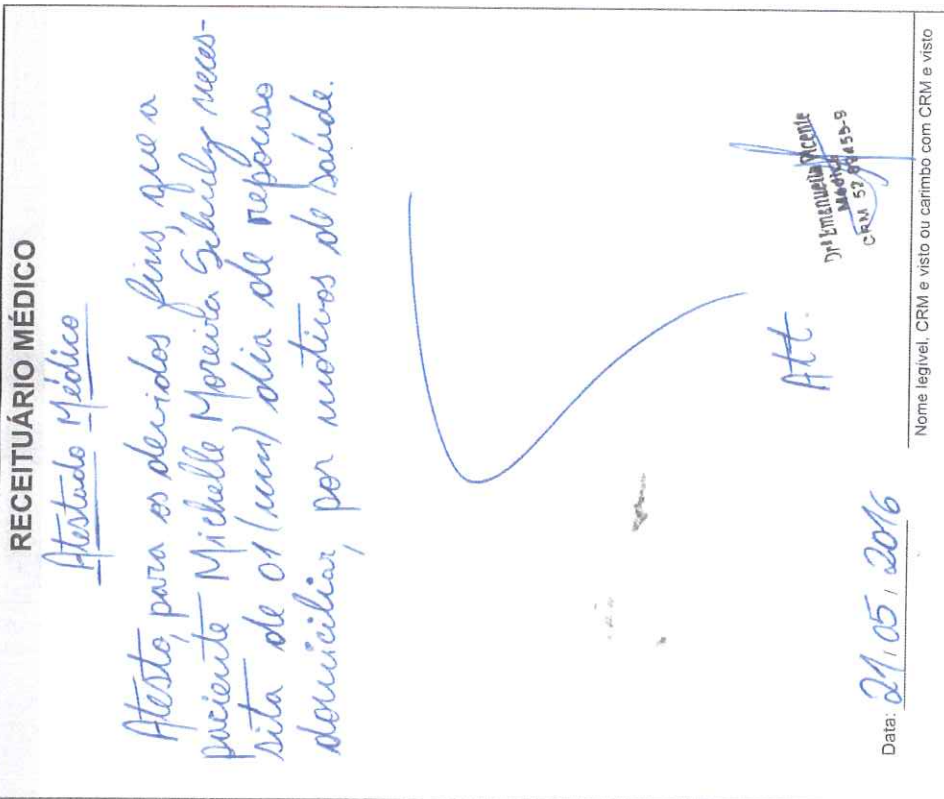 RECEITUÁRIO MÉDICO
Atestado Médico
Atesto, para os devidos fins, que a
paciente Michelle Moreira neces-
sita de 01 (um) dia de repouso
domiciliar, por motivos de saúde.
Att.
Drª Emanuella Vicente
Médica
CRM 52
Data: 21/05/2016
Nome legível, CRM e visto ou carimbo com CRM e visto